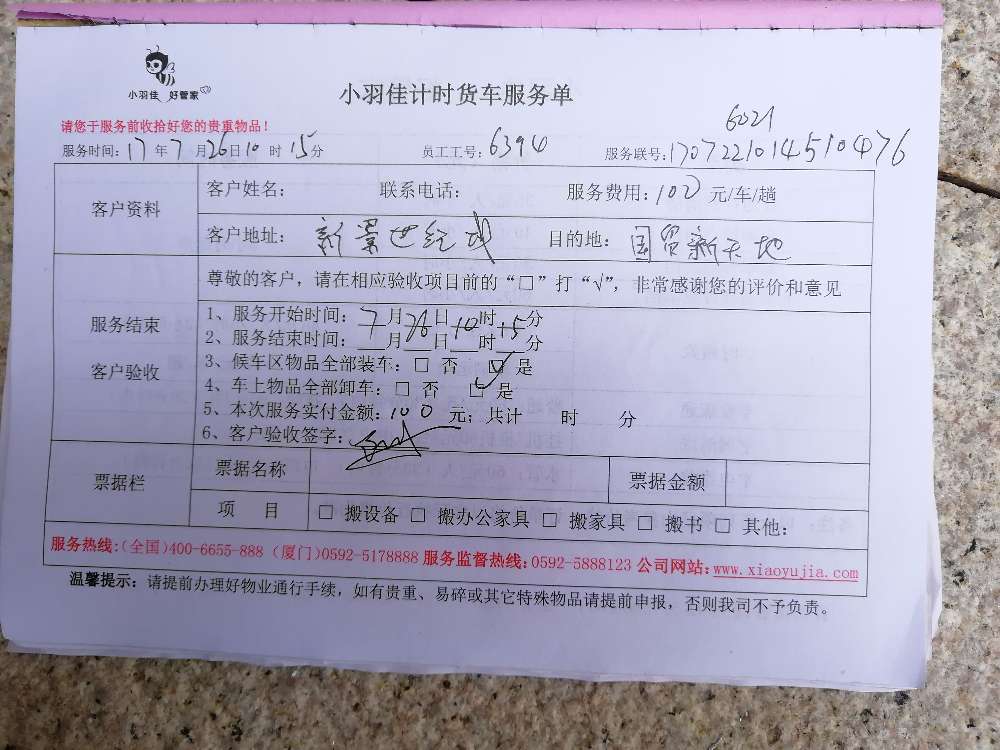 小羽佳 好管家
小羽佳计时货车服务单
6021
请您于服务前收拾好您的贵重物品!
服务时间:17年7月26日10时15分 员工工号:6394 服务联号:1707221014510476
客户资料
客户姓名: 联系电话: 服务费用:100元/车/趟
客户地址: 新景世纪城 目的地: 国贸新天地
服务结束
客户验收
尊敬的客户,请在相应验收项目前的“□”打“√”,非常感谢您的评价和意见
1、服务开始时间:7月26日10时15分
2、服务结束时间:__月__日__时__分
3、候车区物品全部装车:□ 否 ☑ 是
4、车上物品全部卸车:□ 否 □ 是
5、本次服务实付金额:100 元;共计 时 分
6、客户验收签字:
票据栏
票据名称 票据金额
项 目 □ 搬设备 □ 搬办公家具 □ 搬家具 □ 搬书 □ 其他:
服务热线:(全国)400-6655-888 (厦门)0592-5178888 服务监督热线:0592-5888123 公司网站:www.xiaoyujia.com
温馨提示:请提前办理好物业通行手续,如有贵重、易碎或其它特殊物品请提前申报,否则我司不予负责。